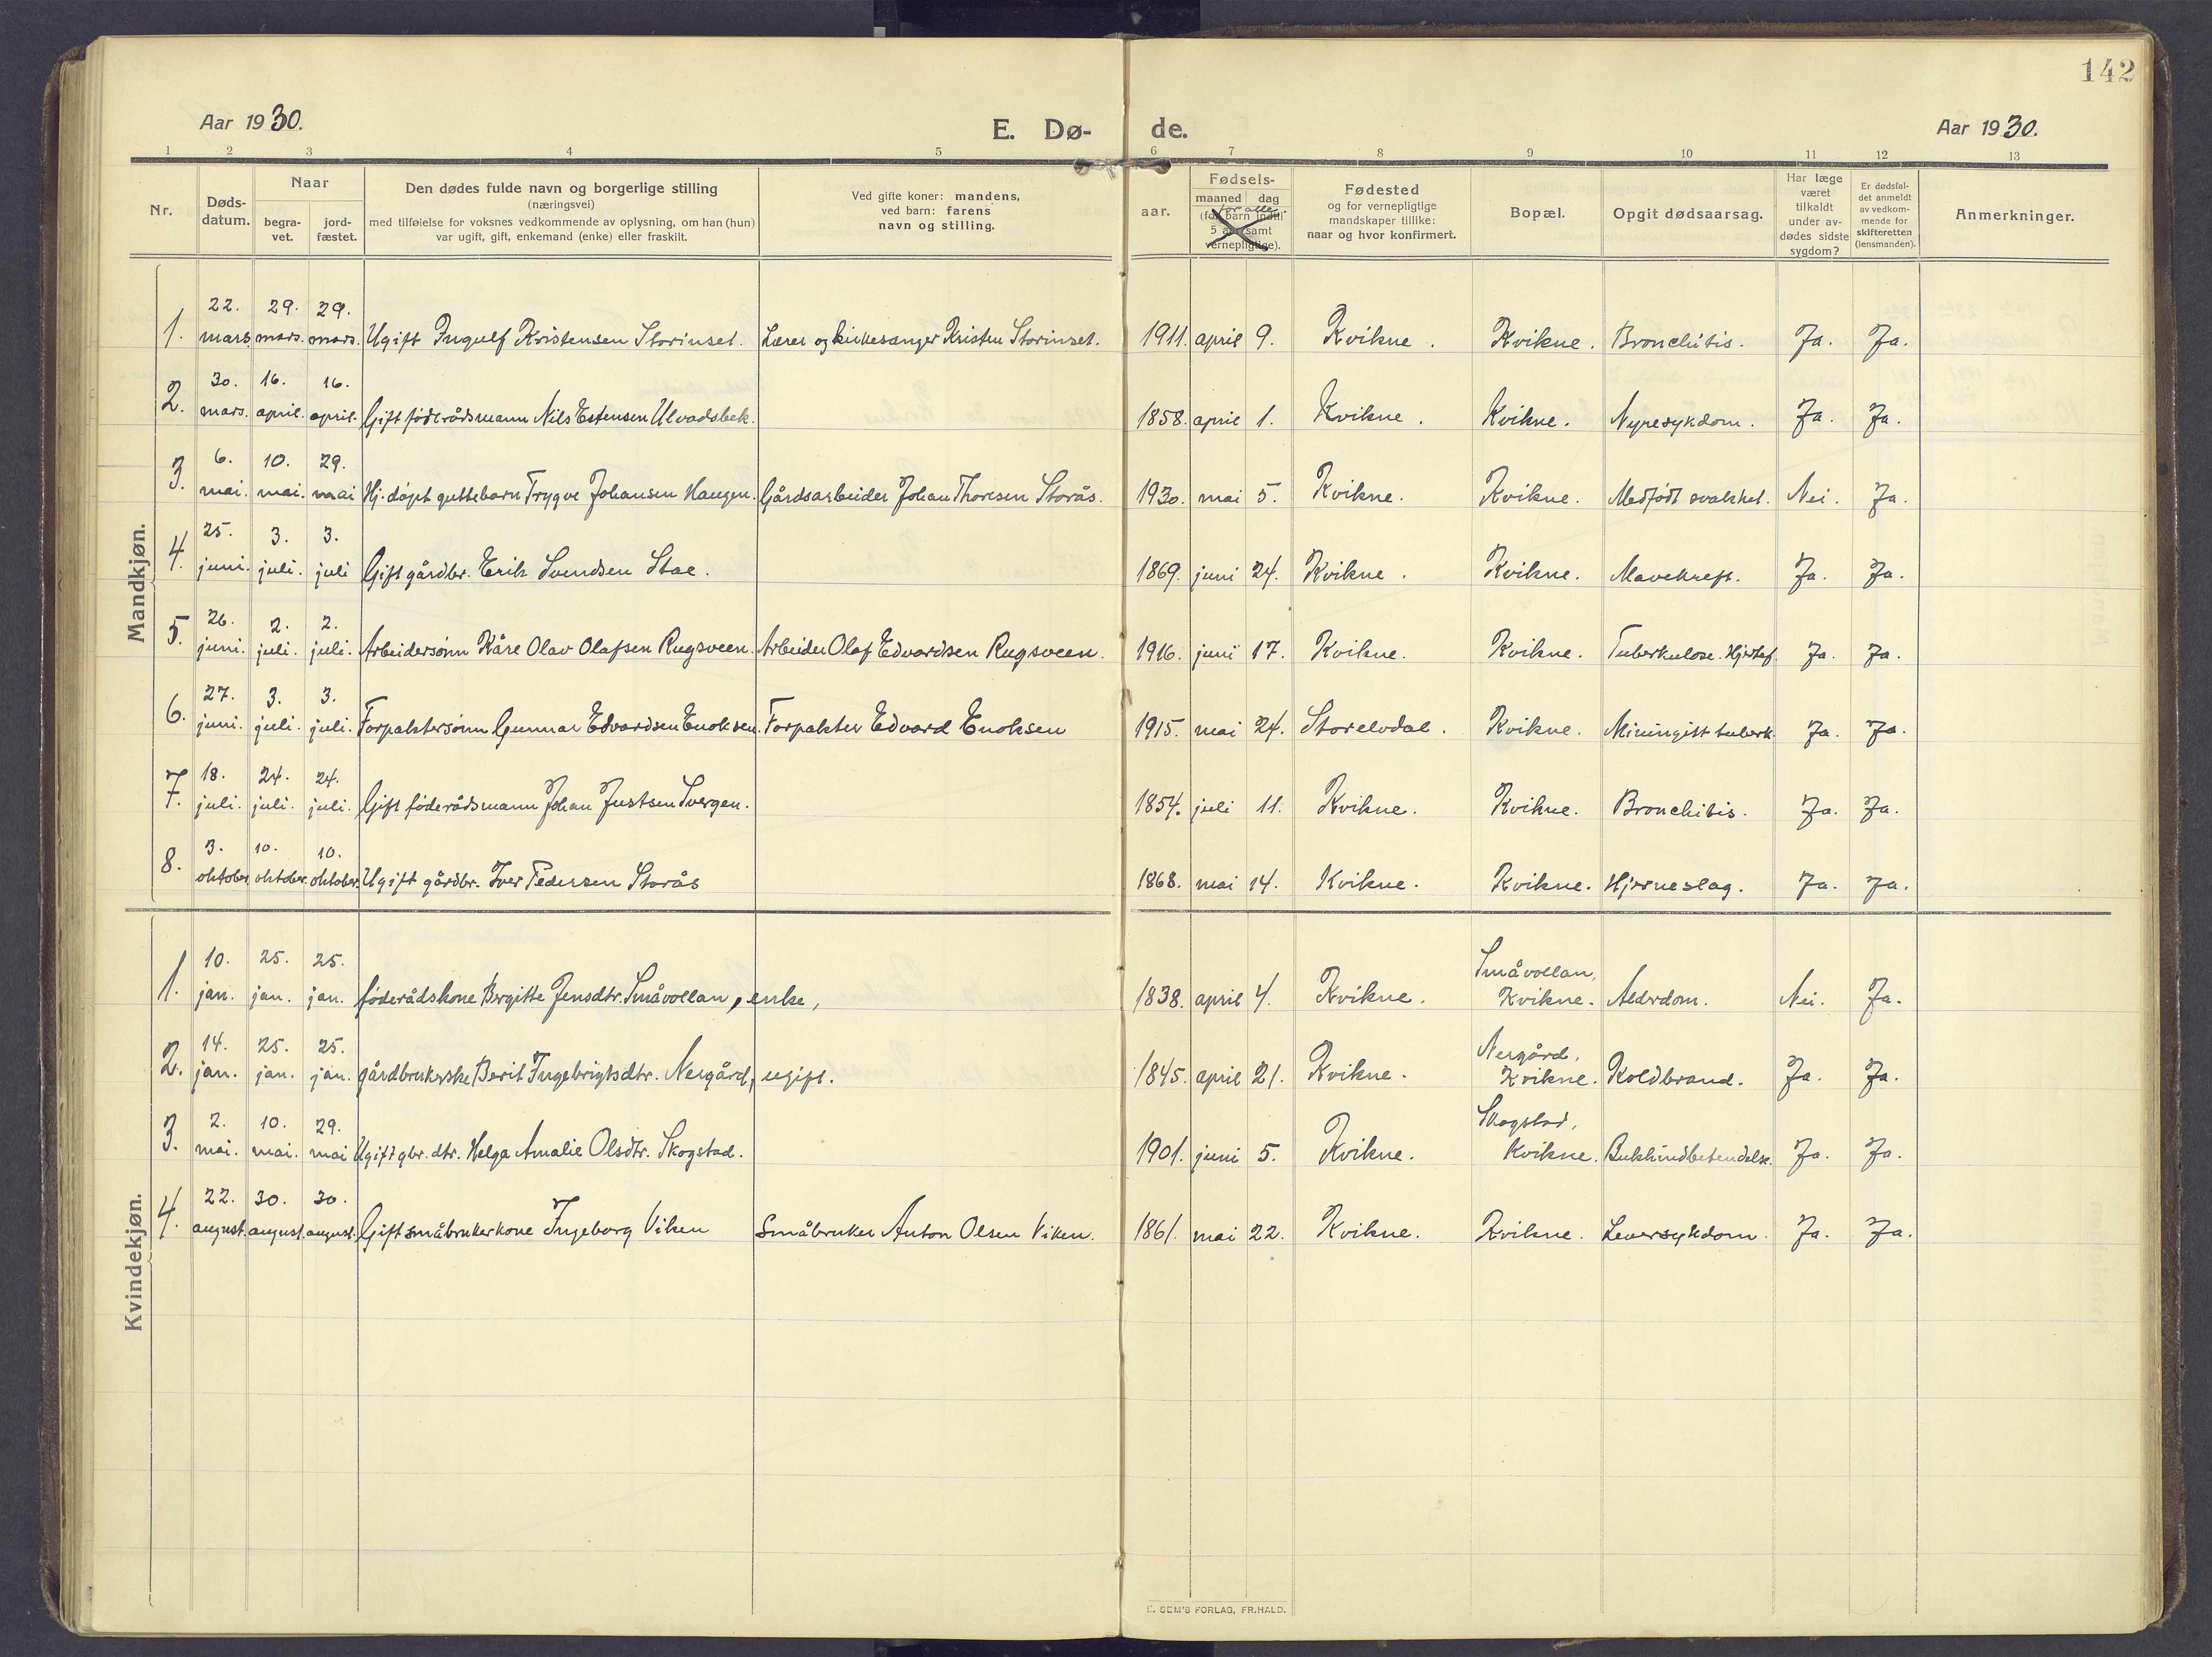 142
Aar 1930.
E. Dø-
de.
Aar 1930.
1 2 3 4 5 6 7 8 9 10 11 12 13
Nr.
Døds-
datum.
Naar
begra-
vet.
jord-
fæstet.
Den dødes fulde navn og borgerlige stilling
(næringsvei)
med tilføielse for voksnes vedkommende av oplysning, om han (hun)
var ugift, gift, enkemand (enke) eller fraskilt.
Ved gifte koner: mandens,
ved barn: farens
navn og stilling.
aar.
Fødsels-
maaned dag
for alle
(for barn indtil
5 aar samt
vernepligtige).
Fødested
og for vernepligtige
mandskaper tillike:
naar og hvor konfirmert.
Bopæl.
Opgit dødsaarsag.
Har læge
været
tilkaldt
under av-
dødes sidste
sygdom?
Er dødsfal-
det anmeldt
av vedkom-
mende for
skifteretten
(lensmanden).
Anmerkninger.
Mandkjøn.
1. 22. mars. 29. mars. 29. mars. Ugift Ingulf Kristensen Storinset. Lærer og kirkesanger Kristen Storinset. 1911. april 9. Kvikne. Kvikne. Bronchitis. Ja. Ja.
2. 30. mars. 16. april. 16. april. Gift föderådsmann Nils Estensen Ulvadsbek. 1858. april 1. Kvikne. Kvikne. Nyresykdom. Ja. Ja.
3. 6. mai. 10. mai. 29. maai Hj. döpt guttebarn Trygve Johansen Haugen. Gårdsarbeider Johan Thoresen Storås. 1930. mai 5. Kvikne. Kvikne. Medfödt svakhet. Nei. Ja.
4. 25. juni. 3. juli. 3. juli Gift gårdbr. Erik Svendsen Stae. 1869. juni 24. Kvikne. Kvikne. Mavekreft. Ja. Ja.
5. 26. juni. 2. juli. 2. juli. Arbeidersönn Kåre Olav Olafsen Rugsveen. Arbeider Olaf Edvardsen Rugsveen. 1916. juni 17. Kvikne. Kvikne. Tuberkulose. Ja. Ja.
6. 27. juni. 3. juli. 3. juli. Forpaktersönn Gunnar Edvardsen Enoksen. Forpakter Edvard Enoksen 1915. mai 24. Storelvdal. Kvikne. tuberk. Ja. Ja.
7. 18. juli. 24. juli. 24. juli. Gift föderådsmann Johan Justsen Svergen. 1854. juli 11. Kvikne. Kvikne. Bronchitis. Ja. Ja.
8. 3. oktober. 10. oktober. 10. oktober. Ugift gårdbr. Iver Pedersen Storås 1868. mai 14. Kvikne. Kvikne. Hjerneslag. Ja. Ja.
Kvindekjøn.
1. 10. jan. 25. jan. 25. jan. föderådskone Birgitte Jensdtr. Småvollan, enke, 1838. april 4. Kvikne. Småvollan, Kvikne. Alderdom. Nei. Ja.
2. 14. jan. 25. jan. 25. jan. gårdbrukerske Berit Ingebrigtsdtr. Nergård, ugift. 1845. april 21. Kvikne. Nergård, Kvikne. Koldbrand. Ja. Ja.
3. 2. mai. 10. mai. 29. mai Ugift gbr. dtr. Helga Amalie Olsdtr. Skogstad. 1901. juni 5. Kvikne. Skogstad, Kvikne. Bukhindbetendelse. Ja. Ja.
4. 22. august. 30. august. 30. august. Gift småbrukerkone Ingeborg Viken Småbruker Anton Olsen Viken. 1861. mai 22. Kvikne. Kvikne. Leversykdom. Ja. Ja.
E. SEM'S FORLAG, FR.HALD.